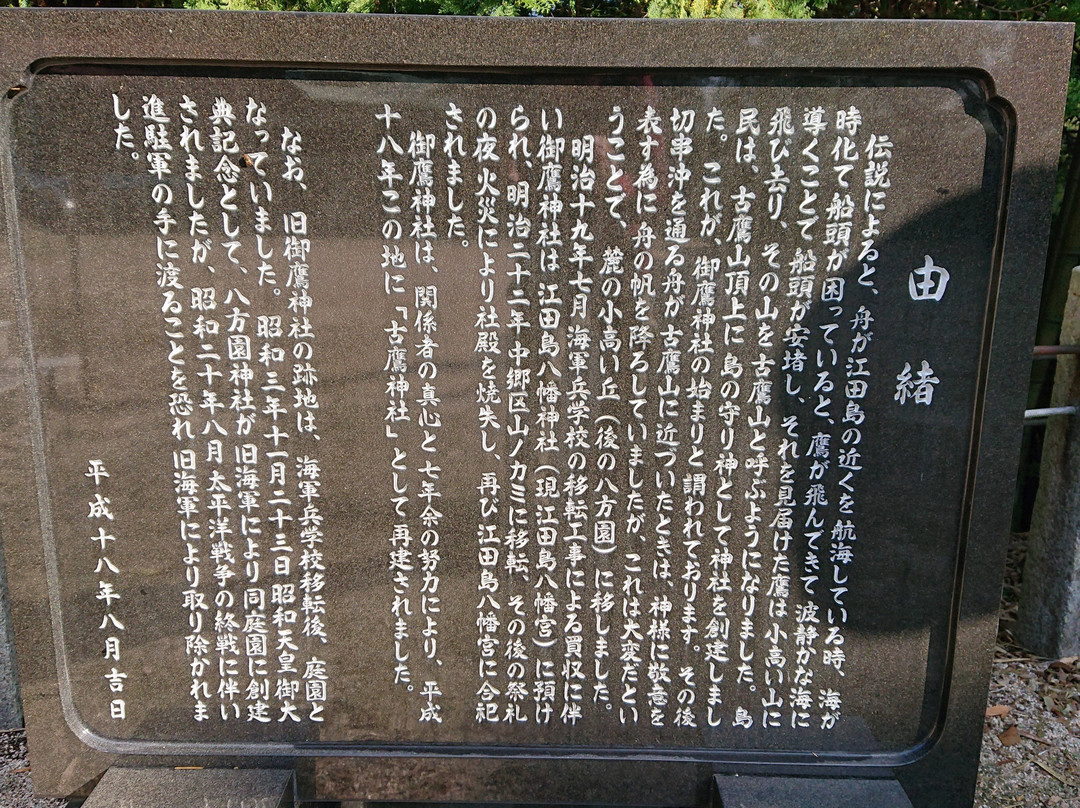 由緒
伝説によると、舟が江田島の近くを航海している時、海が
時化て船頭が困っていると、鷹が飛んできて波静かな海に
導くことで船頭が安堵し、それを見届けた鷹は小高い山に
飛び去り、その山を古鷹山と呼ぶようになりました。島
民は、古鷹山頂上に島の守り神として神社を創建しまし
た。これが、御鷹神社の始まりと謂われております。その後
切串沖を通る舟が古鷹山に近づいたときは、神様に敬意を
表す為に舟の帆を降ろしていましたが、これは大変だとい
うことで、麓の小高い丘（後の八方園）に移しました。
明治十九年七月海軍兵学校の移転工事による買収に伴
い御鷹神社は江田島八幡神社（現江田島八幡宮）に預け
られ、明治二十二年中郷区山ノカミに移転、その後の祭礼
の夜火災により社殿を焼失し、再び江田島八幡宮に合祀
されました。
御鷹神社は、関係者の真心と七年余の努力により、平成
十八年この地に「古鷹神社」として再建されました。
なお、旧御鷹神社の跡地は、海軍兵学校移転後、庭園と
なっていました。昭和三年十一月二十三日昭和天皇御大
典記念として、八方園神社が旧海軍により同庭園に創建
されましたが、昭和二十年八月太平洋戦争の終戦に伴い
進駐軍の手に渡ることを恐れ旧海軍により取り除かれま
した。
平成十八年八月吉日